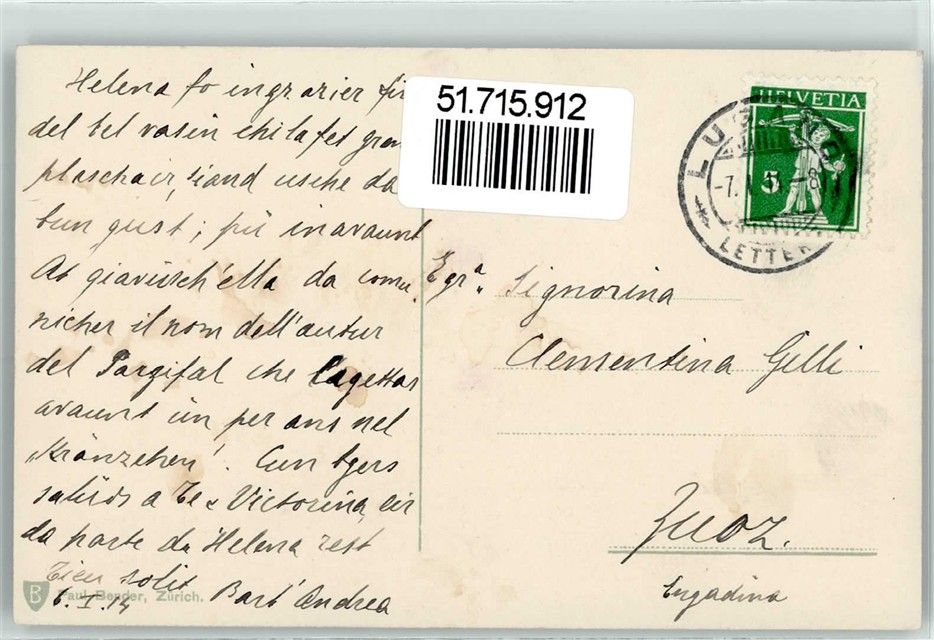 Helena fo ingrazier fi
del bel rasin chi la fet gran
plaschair, siand usche da
bun gust; pü inavaunt
At giavüsch'ella da comu-
nicher il nom dell'autur
del Parzifal che lagettas
avaunt ün per ans nel
„Kränzchen". Cun bgers
salüds a Te & Victorina, eir
da parte da Helena rest
Tieu solit
6.I.14 Barb' Andrea
B Paul Bender, Zürich.
51.715.912
HELVETIA
5
LUGANO
-7.
LETTER
Egrª. Signorina
Clementina Gilli
Zuoz.
Engadina